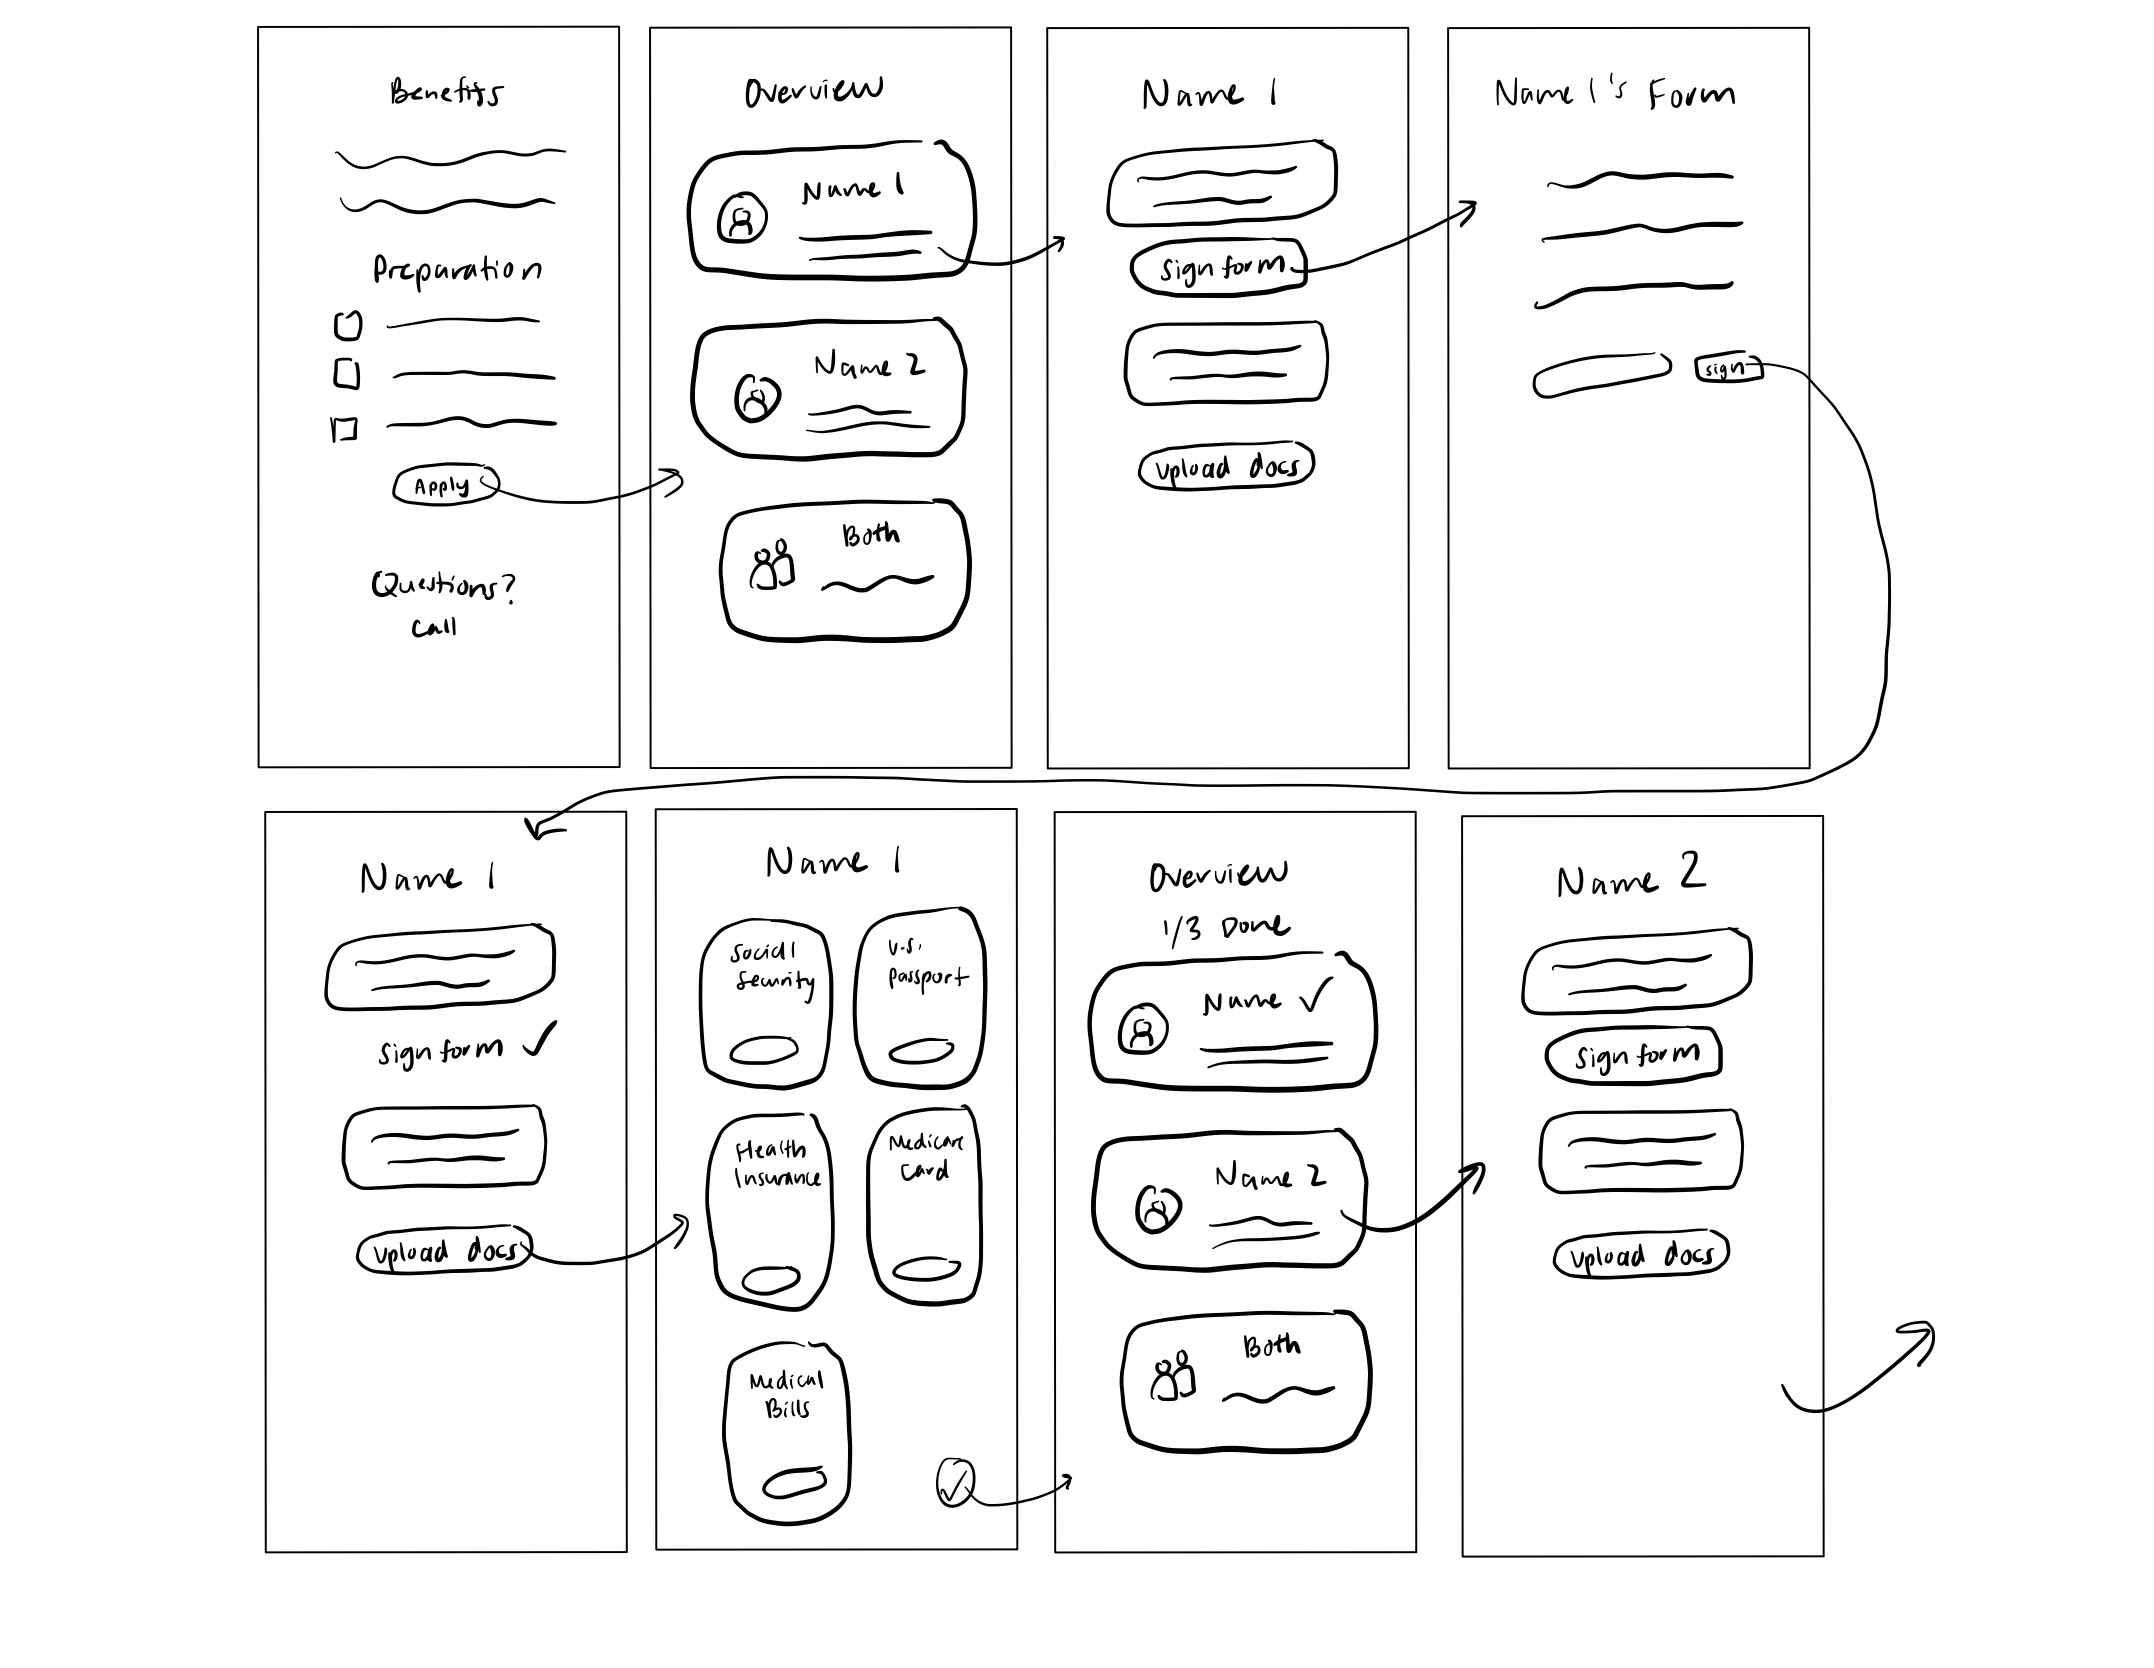 Benefits
Preparation
Apply
Questions?
call
Overview
Name 1
Name 2
Both
Name 1
sign form
upload docs
Name 1's Form
sign
Name 1
sign form ✓
upload docs
Name 1
Social
Security
U.S.
Passport
Health
Insurance
Medicare
Card
Medical
Bills
✓
Overview
1/3 Done
Name ✓
Name 2
Both
Name 2
sign form
upload docs